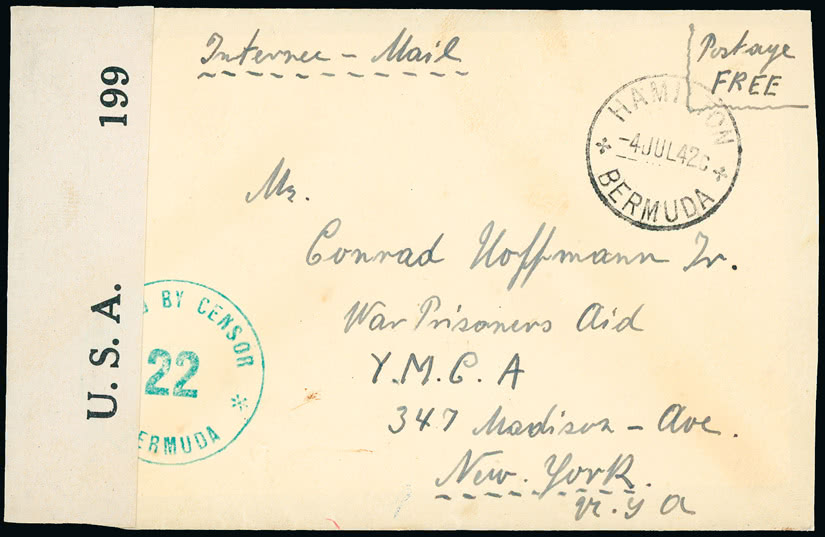 Internee - Mail
Postage
FREE
HAMILTON
-4JUL42C
BERMUDA
Mr.
Conrad Hoffmann Jr.
War Prisoners Aid
Y.M.C.A
347 Madison - Ave.
New. York.
U.S.A.
199
BY CENSOR
22
BERMUDA